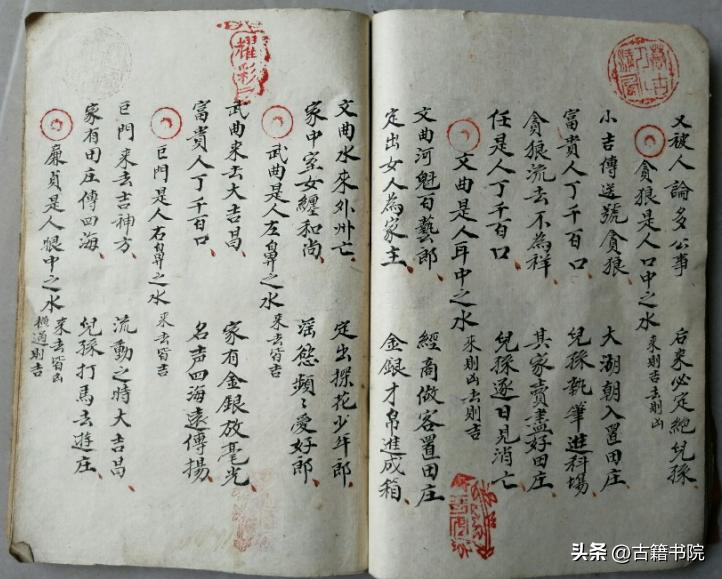 又被人論多公事 后来必定絕兒孫
貪狼是人口中之水 來則吉去則凶
小吉傳送號貪狼 大湖朝入置田庄
富貴人丁千百口 兒孫執筆進科場
貪狼流去不為祥 其家賣盡好田庄
任是人丁千百口 兒孫逐日見消亡
文曲是人耳中之水 來則凶去則吉
文曲河魁百藝郎 經商做客置田庄
定出女人為家主 金銀才帛進成箱
文曲水來外卅亡 定出探花少年郎
家中室女纏和尚 滛慾頻〻愛好郎
武曲是人左鼻之水 來去皆吉
武曲来去大吉昌 家有金銀放毫光
富貴人丁千百口 名声四海遠傳揚
巨門是人右鼻之水 來去皆吉
巨門来去吉神方 流動之時大吉昌
家有田庄傳四海 兒孫打馬去遊庄
廉貞是人眼中之水 來去皆凶
橫過則吉
耀彩
头条 @古籍书院